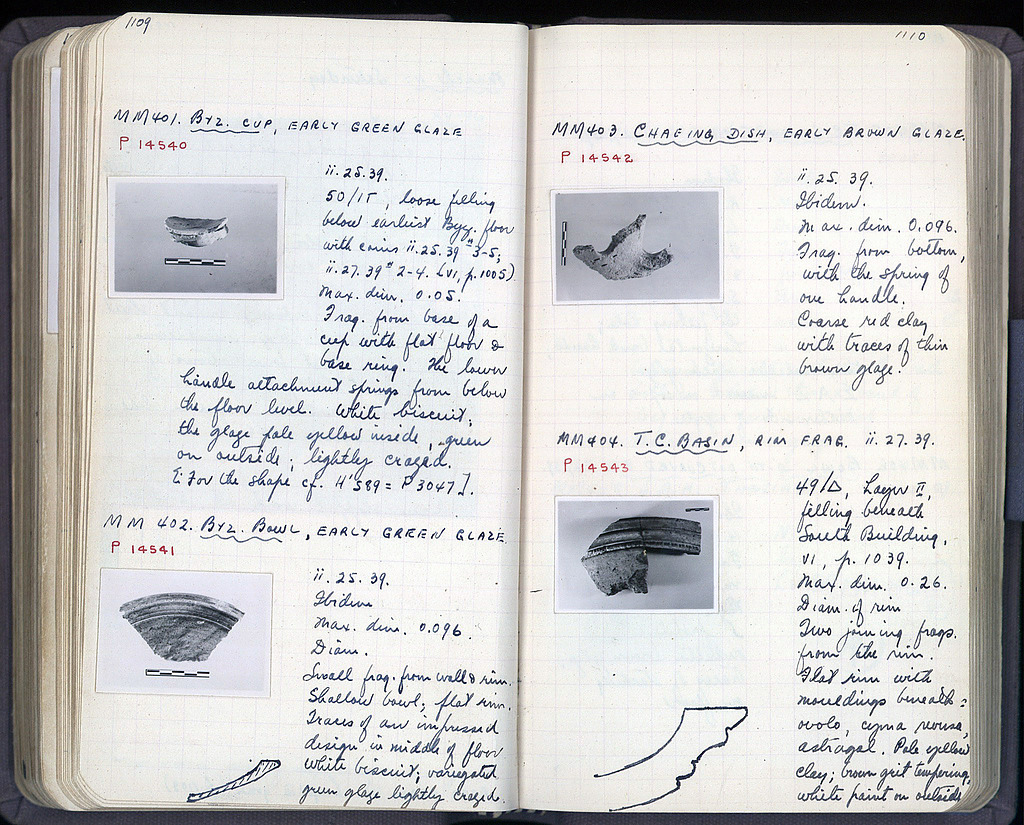 1109
MM401. BYZ. CUP, EARLY GREEN GLAZE
P 14540
ii.25.39.
50/ΙΤ, loose filling
below earliest Byz. floor
with coins ii.25.39 #3-5;
ii.27.39 #2-4. (VI, p.1005)
Max. dim. 0.05.
Frag. from base of a
cup with flat floor &
base ring. The lower
handle attachment springs from below
the floor level. White biscuit;
the glaze pale yellow inside, green
on outside; lightly crazed.
[For the shape cf. H'589 = P3047].
MM 402. BYZ. BOWL, EARLY GREEN GLAZE.
P 14541
ii.25.39.
Ibidem
Max. dim. 0.096.
Diam.
Small frag. from wall & rim.
Shallow bowl; flat rim.
Traces of an impressed
design in middle of floor
White biscuit; variegated
green glaze lightly crazed.
1110
MM403. CHAFING DISH, EARLY BROWN GLAZE.
P 14542
ii.25.39.
Ibidem.
Max. dim. 0.096.
Frag. from bottom,
with the spring of
one handle.
Coarse red clay
with traces of thin
brown glaze.
MM404. T.C. BASIN, RIM FRAG. ii.27.39.
P 14543
49/Δ, Layer II,
filling beneath
South Building,
VI, p. 1039.
Max. dim. 0.26.
Diam. of rim
Two joining frags.
from the rim.
Flat rim with
mouldings beneath:
ovolo, cyma reversa,
astragal. Pale yellow
clay; brown grit tempering,
white paint on outside